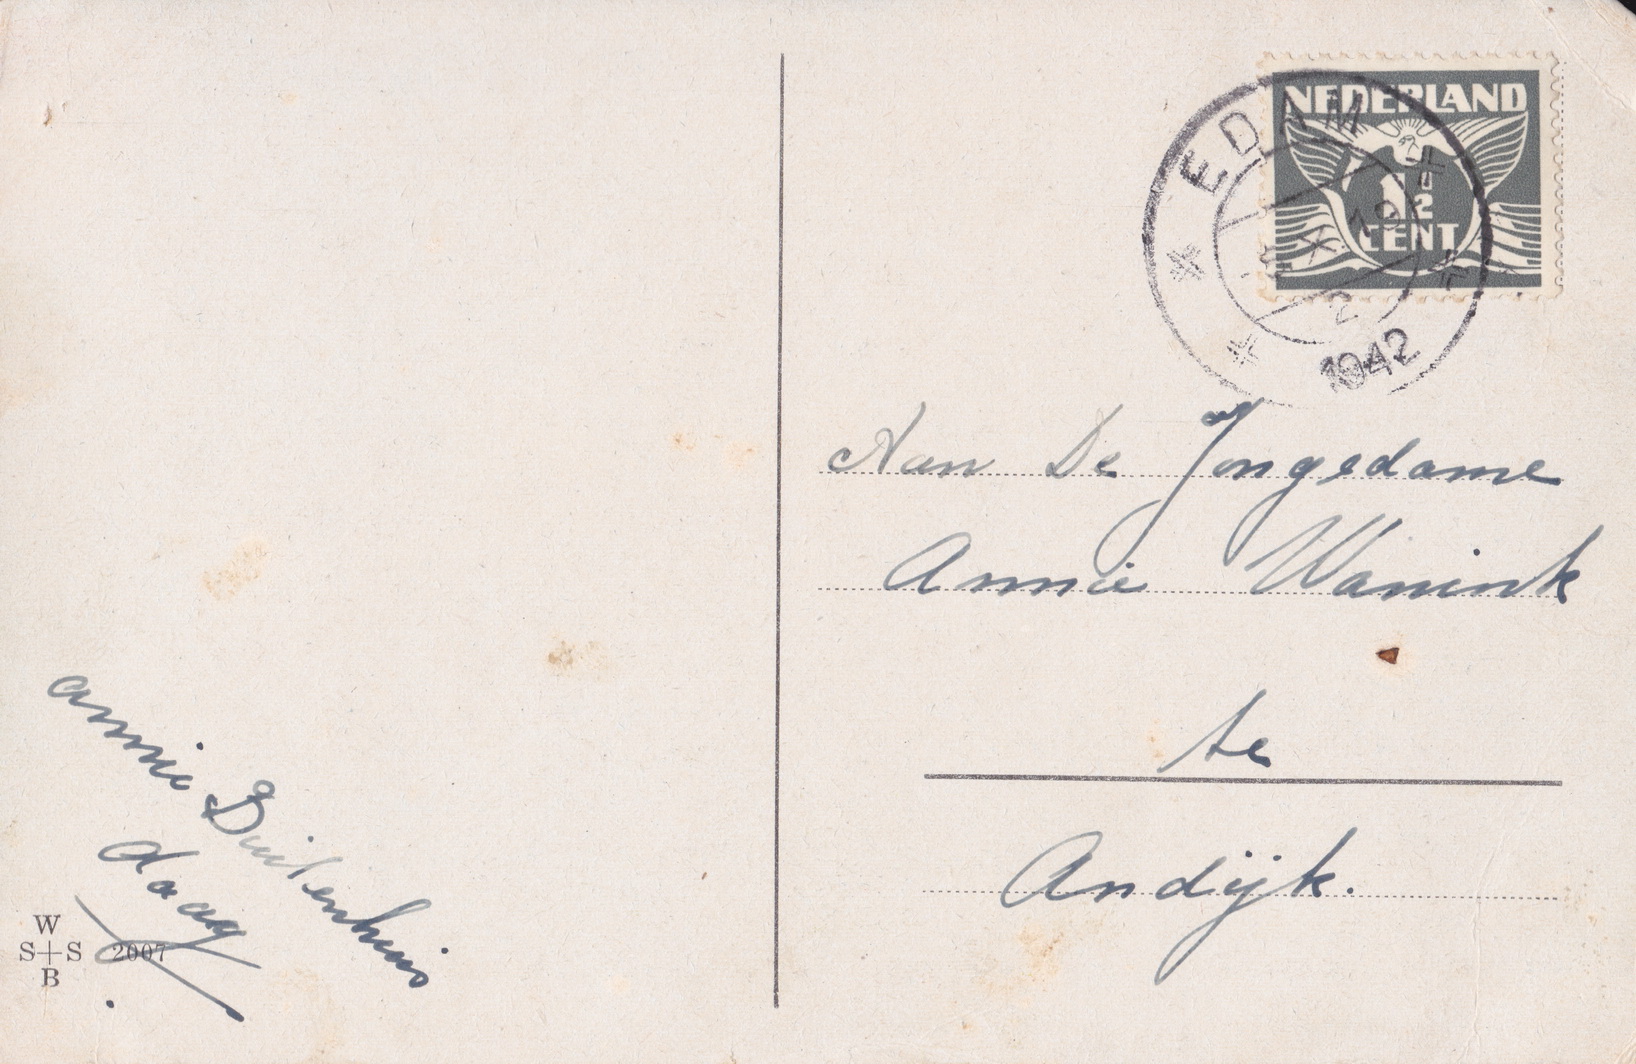 NEDERLAND
1 1/2
CENT
EDAM
X 12
2
1942
Aan De Jongedame
Annie Wanink
te
Andijk.
annie Buitenhuis
daag
W
S+S 2007
B